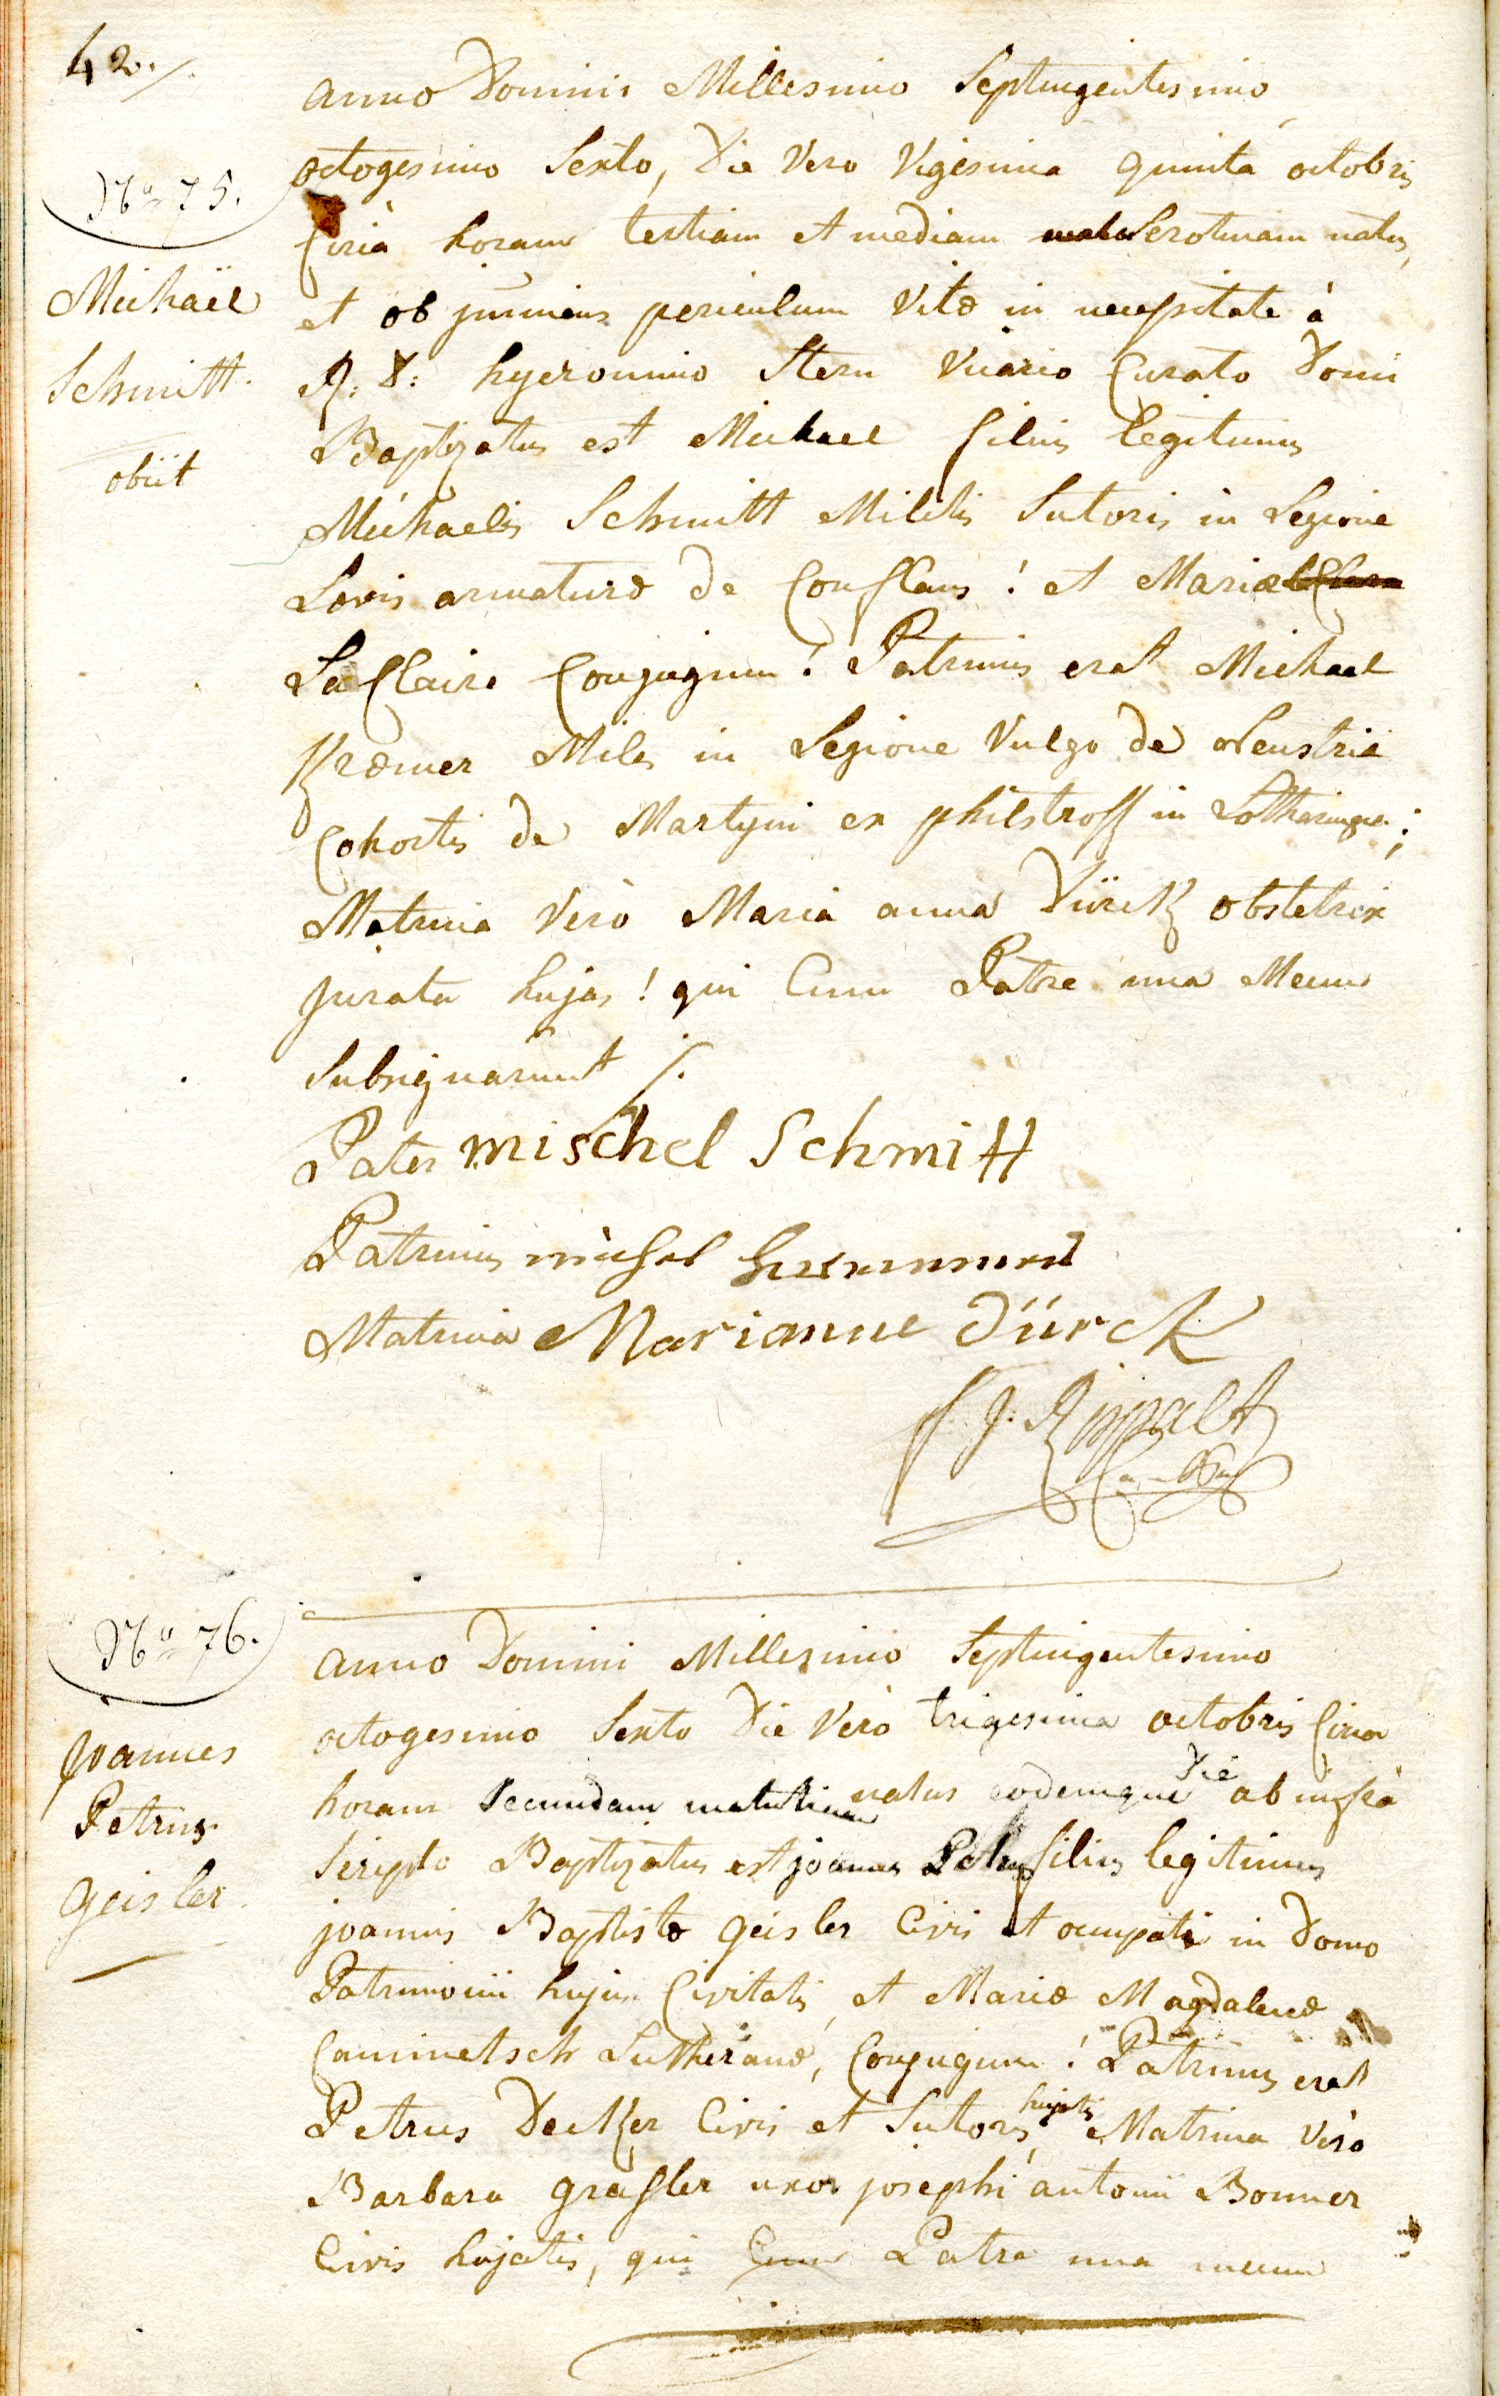 42./.
Anno Domini Millesimo Septuigentesimo
octogesimo Sexto, Die Vero Vigesima quinta octobris
N.° 75.
Circa horam tertiam et mediam Serotinam natus,
Michaël
et ob jminens periculum Vitæ in necessitate à
Schmitt.
R: D: hyeronimo Stern Vicario Curato Domi
Baptizatus est Michael filius legitimus
obiit
Michaelis Schmitt Militis Sutoris in Legione
Levis armaturæ de Conflans! et Mariæ
La Claire Conjugum! Patrinus erat Michael
Kræmer Miles in Legione Vulgo de Neustrie
Cohortis de Martyni ex philstroff in Lotharingia;
Matrina Verò Maria anna Dürck obstetrix
jurata hujas! qui Cum Patre una Mecum
Subsignarunt /.
Pater mischel Schmitt
Patrinus michel
Matrina Marianne Dürck
f. J. Rippalt
N.° 76.
Anno Domini Millesimo Septuigentesimo
Joannes
octogesimo Sexto Die Verò trigesima octobris Circa
Petrus
horam Secundam matutinam natus eodemque Die ab infrà
Geisler.
Scripto Baptizatus est joannes Petrus filius legitimus
joannis Baptistæ Geisler Civis et occupati in Domo
Patrimonii hujus Civitatis, et Mariæ Magdalenæ
Cammetsch Lutheranæ, Conjugum! Patrinus erat
Petrus Decker Civis et Sutoris hujatis, Matrina Verò
Barbara Grassler uxor josephi antonii Bonner
Civis hujatis, qui Cum Patre una mecum